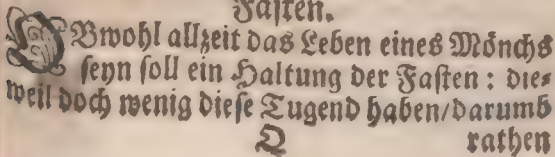 Fasten.
OBwohl allzeit das Leben eines Mönchs
seyn soll ein Haltung der Fasten: die-
weil doch wenig diese Tugend haben/darumb
Q rathen